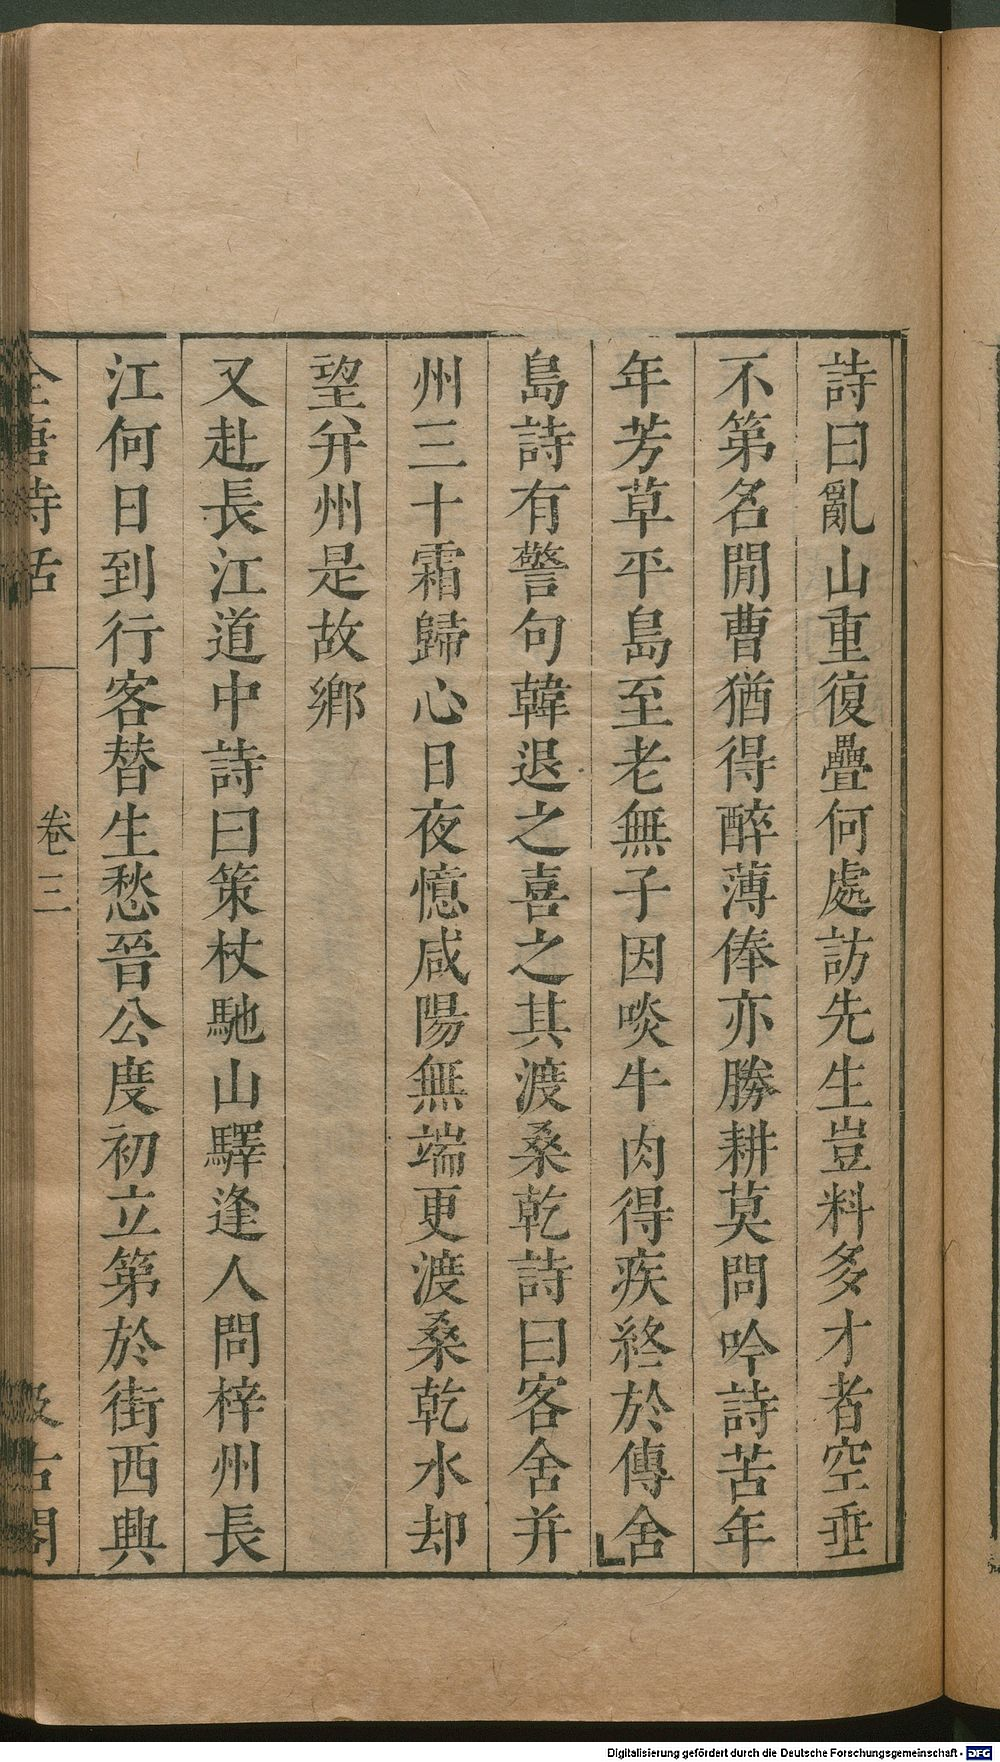 詩曰亂山重復疊何處訪先生豈料多才者空垂
不第名閒曹猶得醉薄俸亦勝耕莫問吟詩苦年
年芳草平島至老無子因啖牛肉得疾終於傳舍
島詩有警句韓退之喜之其渡桑乾詩曰客舍并
州三十霜歸心日夜憶咸陽無端更渡桑乾水却
望并州是故鄉
又赴長江道中詩曰策杖馳山驛逢人問梓州長
江何日到行客替生愁晉公度初立第於街西興
全唐詩話 卷三 汲古閣
Digitalisierung gefördert durch die Deutsche Forschungsgemeinschaft - DFG